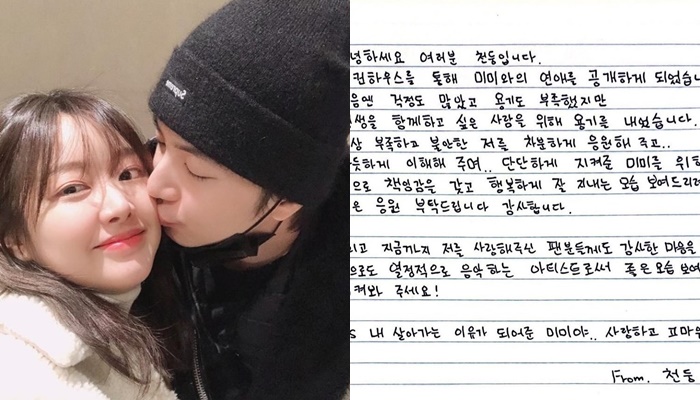 Supreme
녕하세요 여러분 천둥입니다.
컴하우스를 통해 미미와의 연애를 공개하게 되었습니
음엔 걱정도 많았고 용기도 부족했지만
생을 함께하고 싶은 사람을 위해 용기를 내었습니다.
상 부족하고 불안한 저를 차분하게 응원해 주고..
듯하게 이해해 주며.. 단단하게 지켜준 미미를 위해
으로 책임감을 갖고 행복하게 잘 지내는 모습 보여드리려
은 응원 부탁드립니다 감사합니다.
리고 지금까지 저를 사랑해주신 팬분들께도 감사한 마음을
으로도 열정적으로 음악하는 아티스트로써 좋은 모습 보여
켜봐 주세요!
S 내 살아가는 이유가 되어준 미미야.. 사랑하고 고마우
From. 천둥